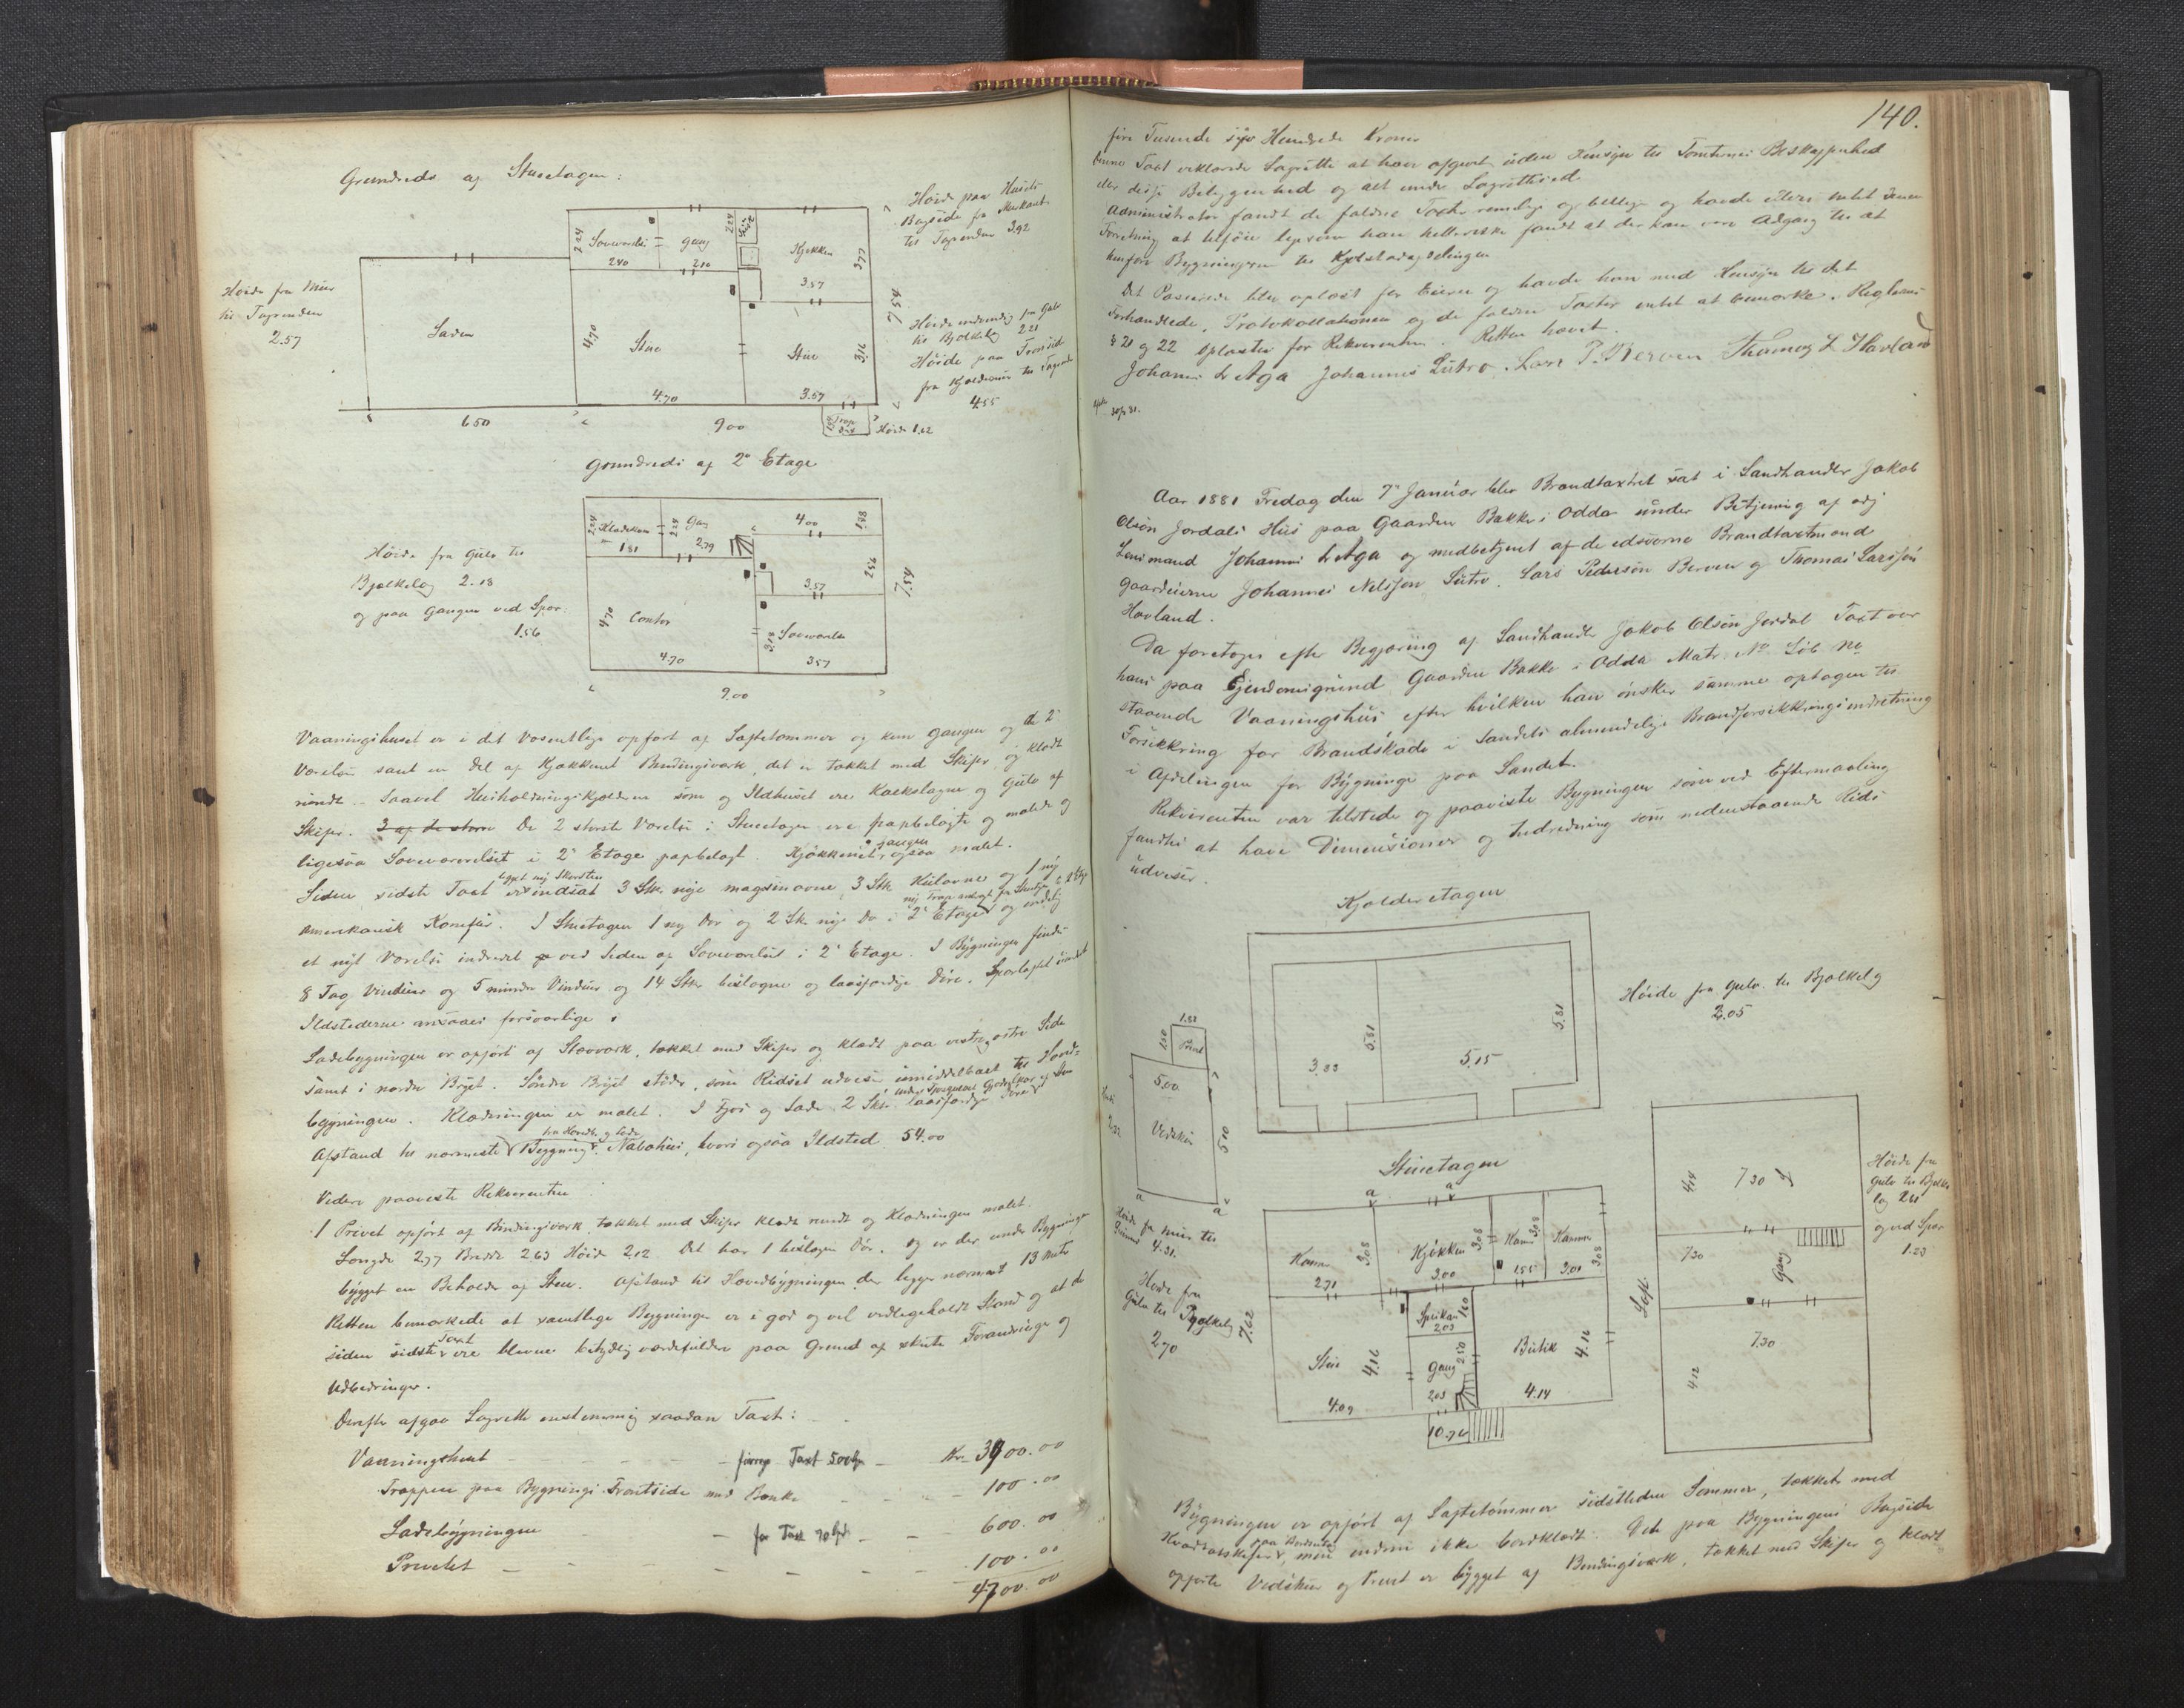 Grundrids af Stueetagen:
Høide paa Husets
Bagside fra Murkant
til Tagrenden 3.92
Soveværelse
Gang
Kjøkken
2.24
2.24
240
210
3.57
3.77
7.54
Høide fra Muur
til Tagrenden
2.57
Laden
4.70
Stue
Stue
3.16
4.70
3.57
Høide indvendig fra Gulv
til Bjelkelag 221
Høide paa Frontside
fra Kjeldermuur til Tagrende
4.55
650
900
Trap
Høide 1.62
Grundrids af 2den Etage
Klædekam
Gang
400
1.88
2.24
2.24
181
2.79
2.56
7.54
3.57
Høide fra Gulv til
Bjælkelag 2.18
og paa Gangen ved Spær:
1.56
4.70
Contor
3.18
Soveværelse
4.70
357
9.00
Vaaningshuset er i det Væsentlige opført af Laftetømmer og kun Gangen og de 2
Værelser samt en Del af Kjøkkenet Bindingsværk, det er tækket med Skifer og klædt
rundt. Saavel Husholdningskjælderen som og Ildhuset ere kalkslagne og Gulv af
Skifer. 3 af de større De 2 største Værelser i Stueetagen ere papbelagte og malede og
ligesaa Soveværelset i 2den Etage papbelagt. Kjøkkenet, Gangen ogsaa malet.
Siden sidste Taxt er bygt ny Skorsten indsat 3 Stk. nye magasinovne, 3 Stk Kulovne og 1 ny
amerikansk Komfur. I Stueetagen 1 ny Dør og 2 Stk nye Do i 2den Etage ny Trap anlagt fra Stuetagen til 2 Etage og endelig
et nyt Værelse indredet ved Siden af Soveværelset i 2den Etage. I Bygningen findes
8 Fag Vinduer og 5 mindre Vinduer og 14 Stk beslagne og laasfærdige Døre.
Ildstederne ansaaes forsvarlige.
Ladebygningen er opført af Stavværk, tækket med Skifer og klædt paa vestre, østre Side
samt i nordre Bryst. Søndre Bryst støder, som Ridset udviser umiddelbart til Hoved-
bygningen. Klædningen er malet. I Fjøs og Lade 2 Stk. laasfærdige Døre
Afstand til nærmeste Bygning fra Hovedb. og Lade Nabohus, hvori ogsaa Ildsted 54.00
Videre paaviste Rekvirenten
1 Privet opført af Bindingsværk tækket med Skifer klædt rundt og Klædningen malet.
Længde 2.77 Bredde 2.63 Høide 2.12 Det har 1 beslagen Dør. og er der under Bygningen
bygget en Beholder af Steen. Afstand til Hovedbygningen der ligger nærmest 13 Meter
Retten bemærkede at samtlige Bygninger er i god og vel vedligeholdt Stand og at de
siden sidste Taxt ere blevne betydelig værdifuldere paa Grund af skeete Forandringer og
Udbedringer.
Derefter afgav Lagrette enstemmig saadan Taxt:
Vaaningshuset - førrige Taxt 500 Spd. - Kr. 3900.00
Trappen paa Bygnings Frontside med Bænke 100.00
Ladebygningen - før Taxt 70 Spd. - 600.00
Privetet - 100.00
4700.00
140.
fire Tusende syv Hundrede Kroner
Denne Taxt erklærede Lagrette at have afgivet uden Hensyn til Tomternes Beskaffenhed
eller disses Beliggenhed og alt under Lagretteseed.
Administrator fandt de faldne Taxter rimelige og billige og havde ellers intet denne
Forretning at tilføie ligesom han hellerikke fandt at der kan være Adgang til at
henføre Bygningen til Kjøbstadafdelingen
Det Passerede blev oplæst for Eieren og havde han med Hensyn til det
Forhandlede, Protokollationen og de faldne Taxter intet at bemærke. Reglernes
§ 21 og 22 oplæstes for Rekvirenten. Retten hævet.
Johannes L Aga Johannes Sutro. Lars P. Berven Thomas L Hovland
30/3 81.
Aar 1881 Fredag den 7de Januar blev Brandtaxtret sat i Landhandler Jakob
Olsøn Jordals Hus paa Gaarden Bakke i Odda under Betjening af
Lensmand Johannes L Aga og medbetjent af de edsvorne Brandtaxtmænd
Gaardeierne Johannes Nelssøn Sutro. Lars Pedersøn Berven og Thomas Larssøn
Hovland.
Da foretoges efter Begjæring af Landhandler Jakob Olsøn Jordal Taxt over
hans paa Eiendomsgrund Gaarden Bakke i Odda Matr. No Løb No
staaende Vaaningshus efter hvilken han ønsker samme optagen til
Forsikkring for Brandskade i Landets almindelige Brandforsikkringsindretning
i Afdelingen for Bygninger paa Landet.
Rekvirenten var tilstede og paaviste Bygningen som ved Eftermaaling
fandtes at have Dimensioner og Indredning som nedenstaaende Rids
udviser.
Kjelderetagen
Høide fra Gulv til Bjælkelag
2.05
5.81
5.81
3.33
5.15
1.88
1.50
Privet
5.00
Vedskur
510
a
a
4.31.
Høide fra
Gulv til Bjælkelag
270
Stueetagen
a
a
Kammer
3.08
Kjøkken
3.08
Kam
3.08
Kammer
3.08
2.71
3.00
155
3.01
7.62
Speiskam
160
2.03
Stue
4.16
Gang
2.50
Butik
4.16
4.09
203
4.14
Loft.
7.30
Høide fra
Gulv til Bjælke
lag 2.61
og ved Spær
1.23
7.30
Gang
7.30
4.12
Bygningen er opført af Laftetømmer sidstleden Sommer, tækket med
Hvatvatskifer paa Bordtag, men endnu ikke bordklædt. Det paa Bygningens Bagside
opførte Vedskur og Privet er bygget af Bindingsværk, tækket med Skifer og klædt